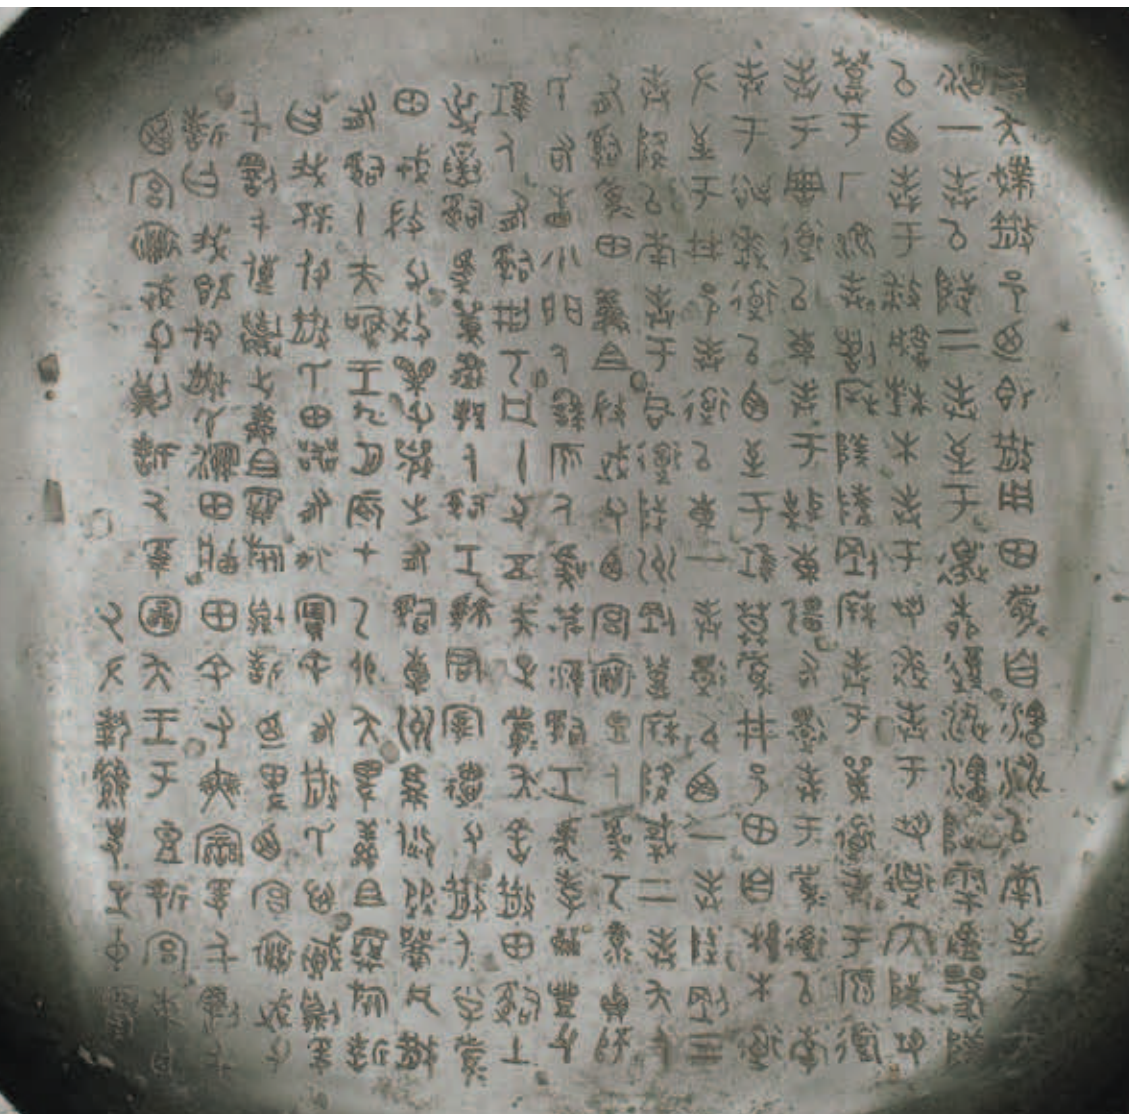 用夨撲散邑乃即散用田眉自瀗涉以南至于大
沽一封以陟二封至于邊柳復涉瀗陟雩
以西封于播城楮木封于芻逨封于芻道內陟芻
登于厂湶封剖陵剛封于單道封于原道
封于周道以東封于東疆右還封于眉道以南
封于逨道以西至于莫眉井邑田自根木道
左至于井邑封道以東一封還以西一封陟剛三
封降以南封于同道陟州剛登降棫二封夨人
有司眉田鮮且微武父西宮襄豆人虞丂彔貞師
氏右眚小門人繇原人虞艿淮司工虎孝龠豐父
人有司刑丂凡十又五夫正眉夨舍散田司土
屰寅司馬單邦人司工君宰德父散人小子眉
田戎微父效父襄之有司橐州就焂從凡散
有司十夫唯王九月辰才乙卯夨俾鮮且旅誓
曰我既付散氏田器有爽實余有散氏心賊則爰
千罰千傳棄之鮮且旅則誓乃俾西宮襄武父
誓曰我既付散氏濕田牆田余有爽變爰千罰千
西宮襄武父則誓厥受圖夨王于豆新宮東廷
厥左執要史正中農